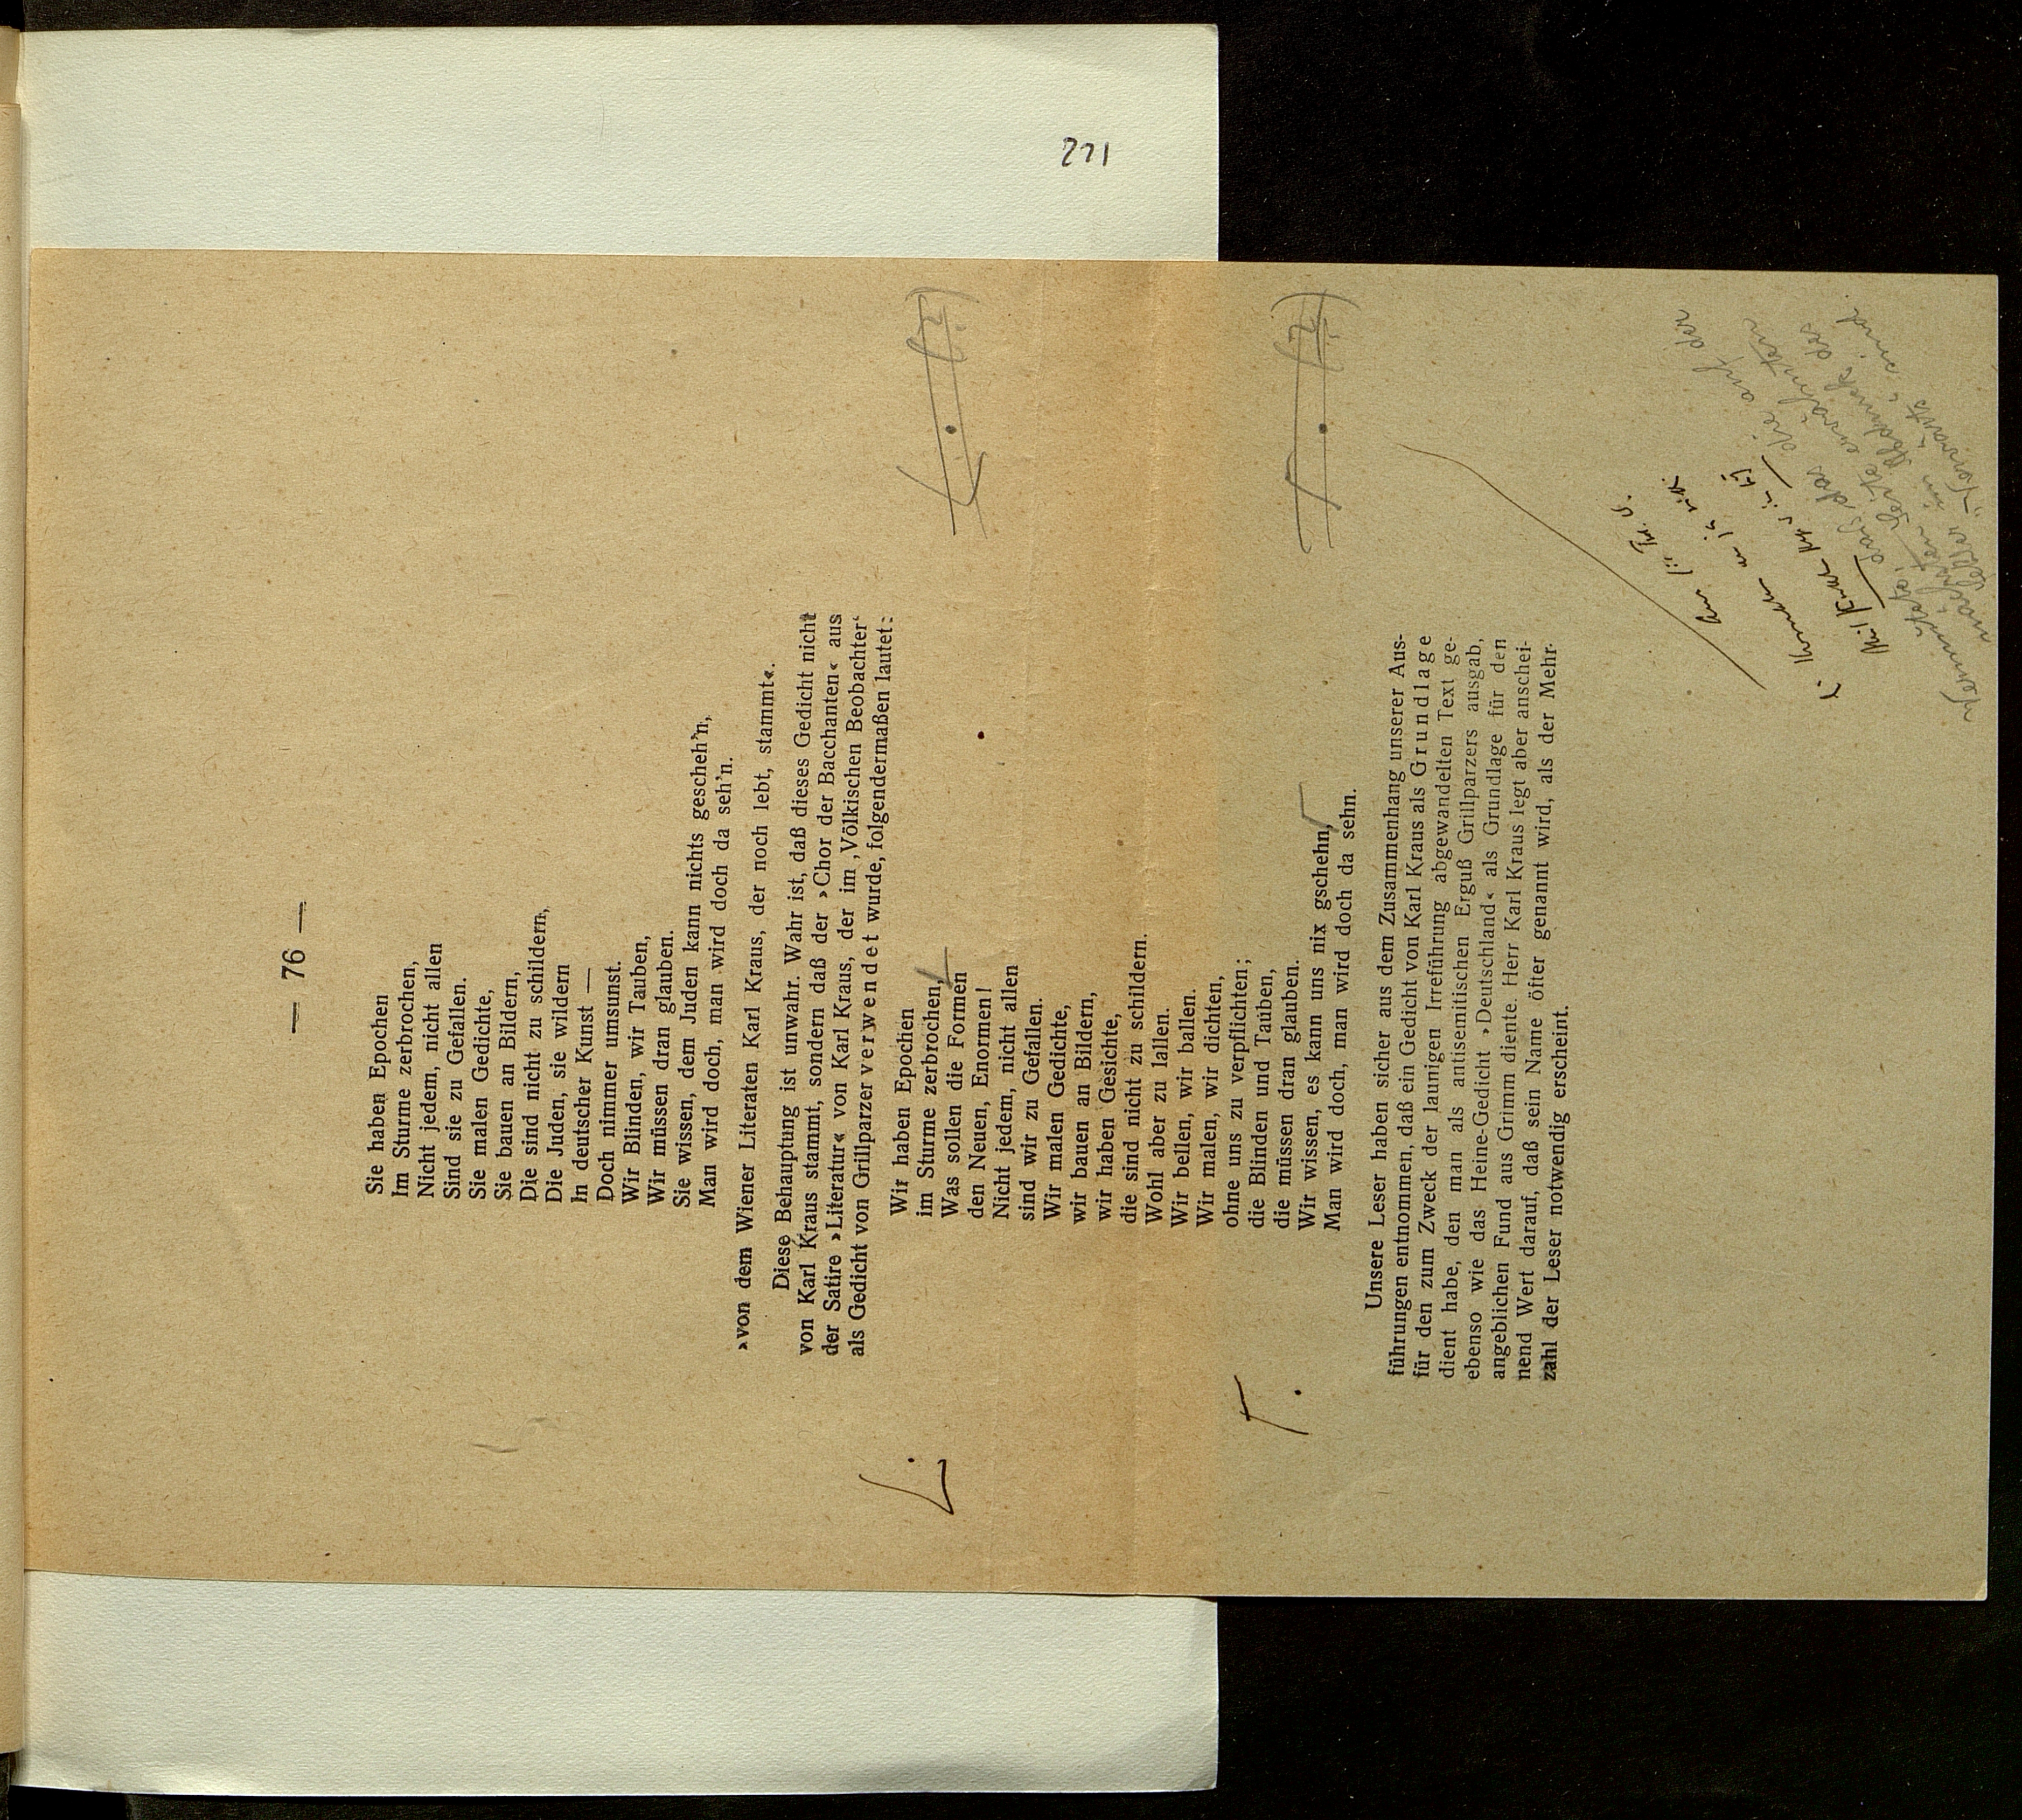 221
— 76 —
Sie haben Epochen
Im Sturme zerbrochen,
Nicht jedem, nicht allen
Sind sie zu Gefallen.
Sie malen Gedichte,
Sie bauen an Bildern,
Die sind nicht zu schildern,
Die Juden, sie wildern
In deutscher Kunst —
Doch nimmer umsunst.
Wir Blinden, wir Tauben,
Wir müssen dran glauben.
Sie wissen, dem Juden kann nichts gescheh'n,
Man wird doch, man wird doch da seh'n.
»von dem Wiener Literaten Karl Kraus, der noch lebt, stammt«.
Diese Behauptung ist unwahr. Wahr ist, daß dieses Gedicht nicht
von Karl Kraus stammt, sondern daß der »Chor der Bacchanten« aus
der Satire »Literatur« von Karl Kraus, der im ‚Völkischen Beobachter‘
als Gedicht von Grillparzer verwendet wurde, folgendermaßen lautet:
Wir haben Epochen
im Sturme zerbrochen,
Was sollen die Formen
den Neuen, Enormen!
Nicht jedem, nicht allen
sind wir zu Gefallen.
Wir malen Gedichte,
wir bauen an Bildern,
wir haben Gesichte,
die sind nicht zu schildern.
Wohl aber zu lallen.
Wir bellen, wir ballen.
Wir malen, wir dichten,
ohne uns zu verpflichten;
die Blinden und Tauben,
die müssen dran glauben.
Wir wissen, es kann uns nix gschehn,
Man wird doch, man wird doch da sehn.
Unsere Leser haben sicher aus dem Zusammenhang unserer Aus-
führungen entnommen, daß ein Gedicht von Karl Kraus als Grundlage
für den zum Zweck der launigen Irreführung abgewandelten Text ge-
dient habe, den man als antisemitischen Erguß Grillparzers ausgab,
ebenso wie das Heine-Gedicht »Deutschland« als Grundlage für den
angeblichen Fund aus Grimm diente. Herr Karl Kraus legt aber anschei-
nend Wert darauf, daß sein Name öfter genannt wird, als der Mehr-
zahl der Leser notwendig erscheint.
die auf der
Seite erwähnten
im Abdruck des
„Vorwärts“ sind